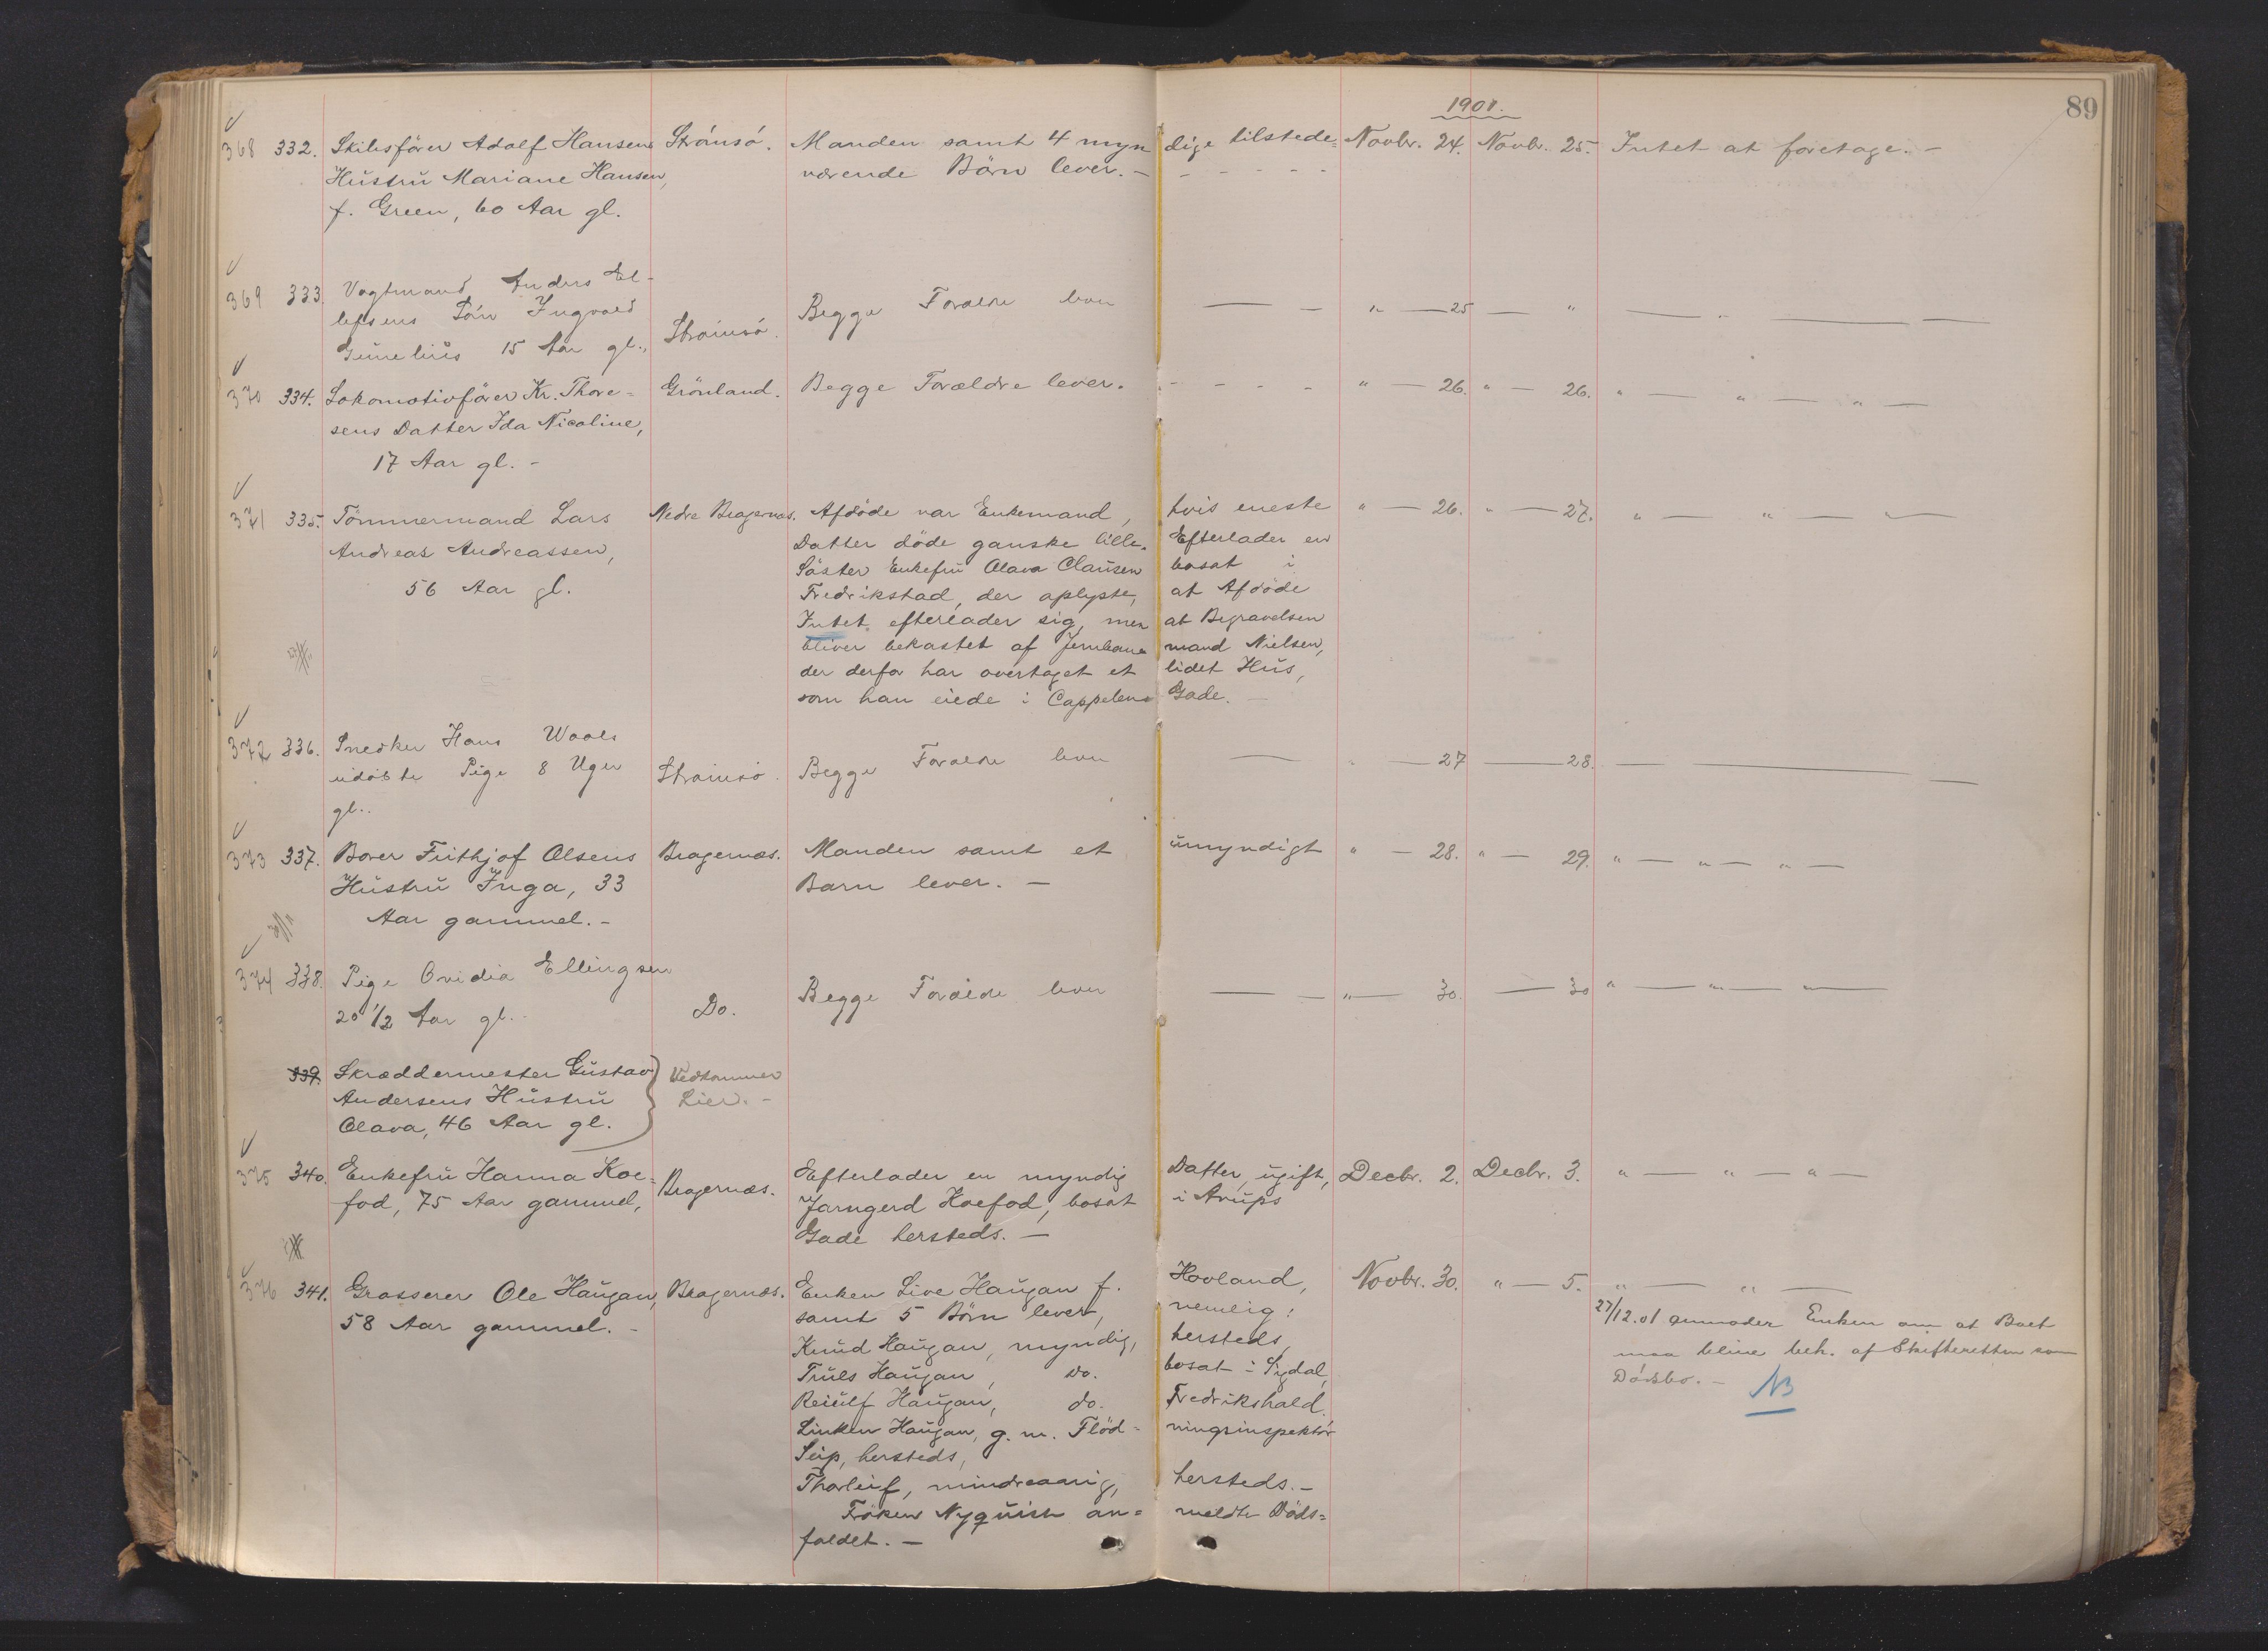 1901.
89
368 332. Skibsfører Adolf Hansens Strømsø. Manden samt 4 myn dige tilstede= Novbr. 24. Novbr. 25. Intet at foretage. -
Hustru Mariane Hansen, værende Børn lever. - - - - - -
f. Green, 60 Aar gl.
369 333. Vagtmand Anders El-
lefsens Søn Ingvald Strømsø. Begge Forældre lever — - " — 25 — " — " — —
15 Aar gl.,
370 334. Lokomotivfører Kr. Thore= Grønland. Begge Forældre lever. - - - - " — 26. " — 26. " — " — " —
sens Datter Ida Nicoline,
17 Aar gl. -
371 335. Tømmermand Lars Nedre Bragernæs. Afdøde var Enkemand, hvis eneste " — 26. " — 27. " — " — " —
Andreas Andreassen, Datter døde ganske lille. Efterlader en
56 Aar gl. Søster Enkefru Olava Clausen bosat i
Fredrikstad, der oplyste, at Afdøde
Intet efterlader sig, men at Begravelsen
bliver bekostet af Jernbane mand Nielsen,
der derfor har overtaget et lidet Hus,
som han eiede i Cappelens Gade. -
372 336. Snedker Hans
udøbte Pige 8 Uger Strømsø. Begge Forældre lever — " — 27 — 28. — — —
gl..
373 337. Bører Frithjof Olsens Bragernæs. Manden samt et umyndigt " — 28. " — 29. " — " — " —
Hustru Inga, 33 Barn lever. -
Aar gammel. -
374 338. Pige Ovidia Ellingsen
20 1/2 Aar gl.. Do. Begge Forældre lever — - " — 30. — 30 " — " — " —
339. Skræddermester Gustav Vedkommer
Andersens Hustru Lier. -
Olava, 46 Aar gl.
375 340. Enkefru Hanna Koe= Bragernæs. Efterlader en myndig Datter, ugift, Decbr. 2. Decbr. 3. " — " — " —
fod, 75 Aar gammel, Jarngerd Koefod, bosat i Arups
Gade hersteds. -
376 341. Grosserer Ole Haugan, Bragernæs. Enken Live Haugan f. Hovland, Novbr. 30. " — 5. " — " —
58 Aar gammel. - samt 5 Børn lever, nemlig: 27/12.01 anmoder Enken om at Boet
Knud Haugan, myndig, hersteds, maa blive beh. af Skifteretten som
Truls Haugan, do. bosat i Sigdal, Dødsbo. - NB
Reiulf Haugan, do. Fredrikshald.
Linken Haugan, g. m. Flød= ningsinspektør
Seip, hersteds,
Thorleif, mindreaarig, hersteds. -
Frøken Nyquist an= meldte Døds=
faldet. -